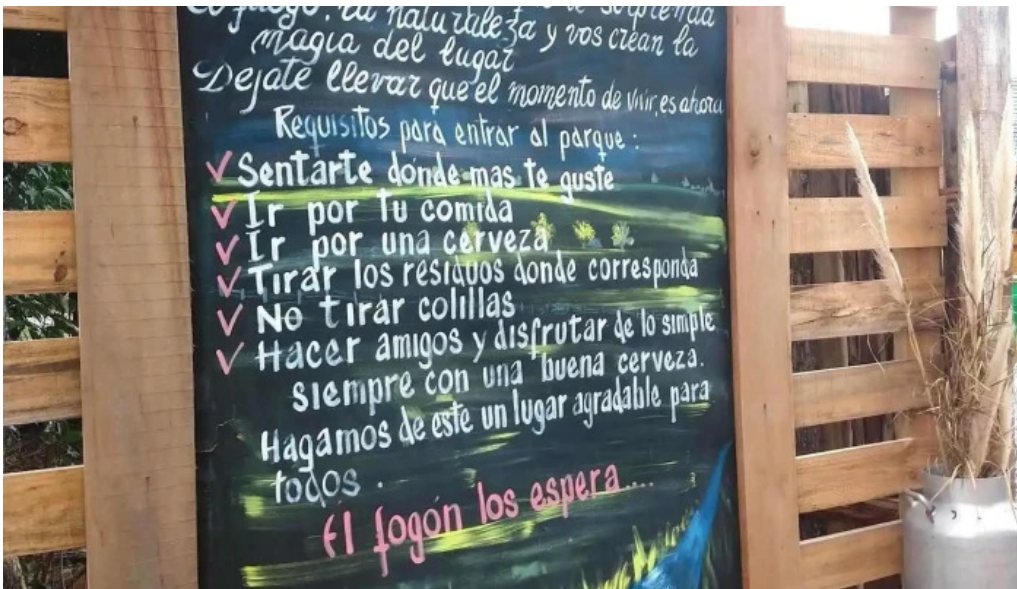 El fuego, la naturaleza y vos crean la
magia del lugar
Dejate llevar que el momento de vivir, es ahora
Requisitos para entrar al parque:
Sentarte donde mas te guste
Ir por tu comida
Ir por una cerveza
Tirar los residuos donde corresponda
No tirar colillas
Hacer amigos y disfrutar de lo simple
siempre con una buena cerveza.
Hagamos de este un lugar agradable para
todos.
El fogón los espera....